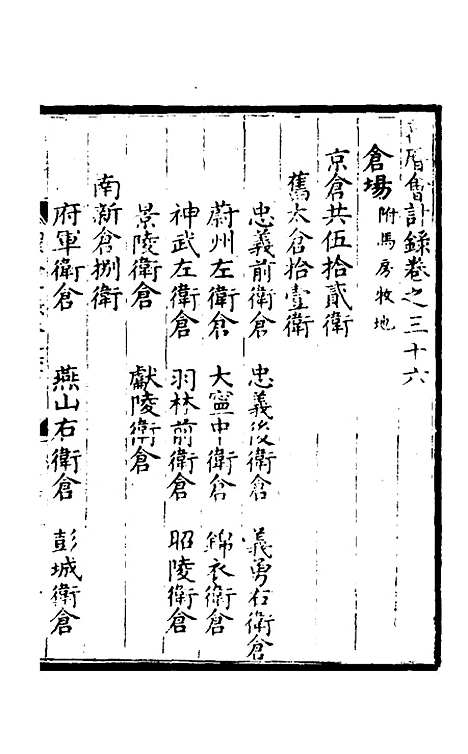 萬曆會計錄卷之三十六
倉場 附馬房牧地
京倉共伍拾貳衛
舊太倉拾壹衛
忠義前衛倉 忠義後衛倉 義勇右衛倉
蔚州左衛倉 大寧中衛倉 錦衣衛倉
神武左衛倉 羽林前衛倉 昭陵衛倉
景陵衛倉 獻陵衛倉
南新倉捌衛
府軍衛倉 燕山右衛倉 彭城衛倉